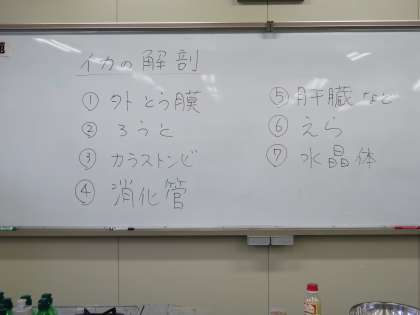 イカの解剖
① 外とう膜
② ろうと
③ カラストンビ
④ 消化管
⑤ 肝臓など
⑥ えら
⑦ 水晶体